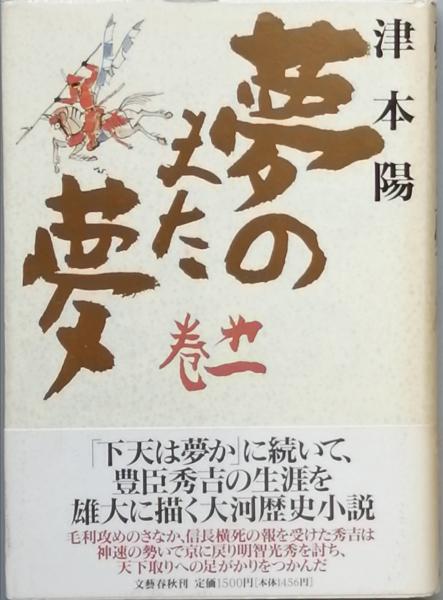 津本陽
夢の
また
夢
巻一
「下天は夢か」に続いて、
豊臣秀吉の生涯を
雄大に描く大河歴史小説
毛利攻めのさなか、信長横死の報を受けた秀吉は
神速の勢いで京に戻り明智光秀を討ち、
天下取りへの足がかりをつかんだ
文藝春秋刊 定価1500円[本体1456円]